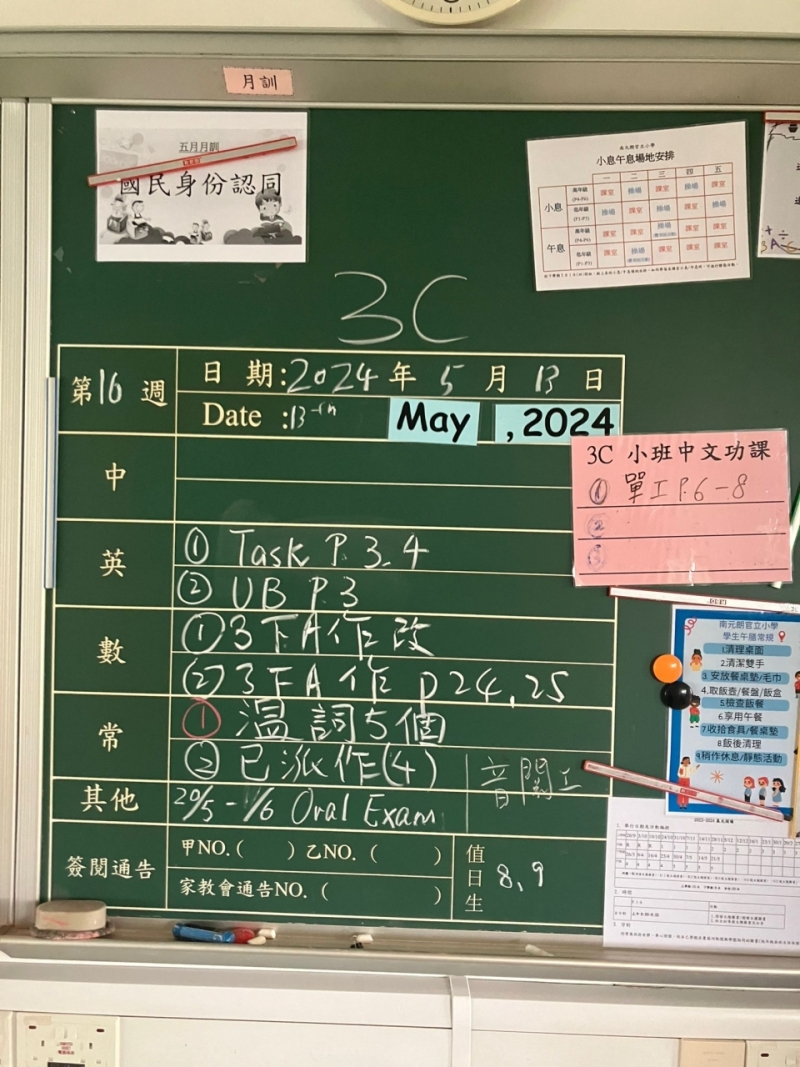 月訓
五月月訓
國民身份認同
南元朗官立小學
小息午息場地安排
一 二 三 四 五
小息
高年級
(P4-P6)
課室 操場 課室 操場 課室
低年級
(P1-P3)
操場 課室 操場 課室 操場
午息
高年級
(P4-P6)
課室 課室 操場 課室 課室
低年級
(P1-P3)
課室 操場 課室 課室 課室
3C
第16週
日期:2024年5月13日
Date :13th May ,2024
中
英
① Task P.3.4
② UB P.3
數
① 3下A作改
② 3下A作 p24,25
常
① 溫詞5個
② 已派作(4)
音關工
其他
20/5-1/6 Oral Exam
簽閱通告
甲NO.( ) 乙NO.( )
家教會通告NO.( )
值日生
8,9
3C 小班中文功課
① 單工 P.6-8
②
③
南元朗官立小學
學生午膳常規
1.清理桌面
2.清潔雙手
3.安放餐桌墊/毛巾
4.取飯壺/餐盤/飯盒
5檢查飯餐
6.享用午餐
7.收拾食具/餐桌墊
8.飯後清理
9.稍作休息/靜態活動